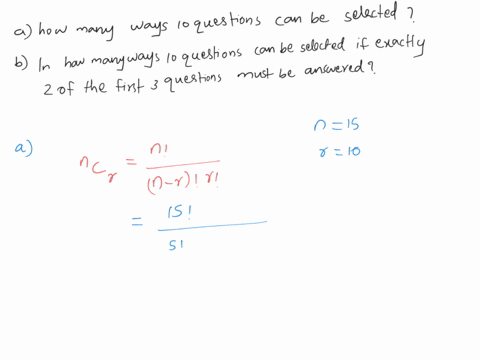 a) how many ways 10 questions can be selected ?
b) In how many ways 10 questions can be selected if exactly
2 of the first 3 questions must be answered ?
a)
n = 15
r = 10
nCr = n! / (n-r)! r!
= 15! / 5!